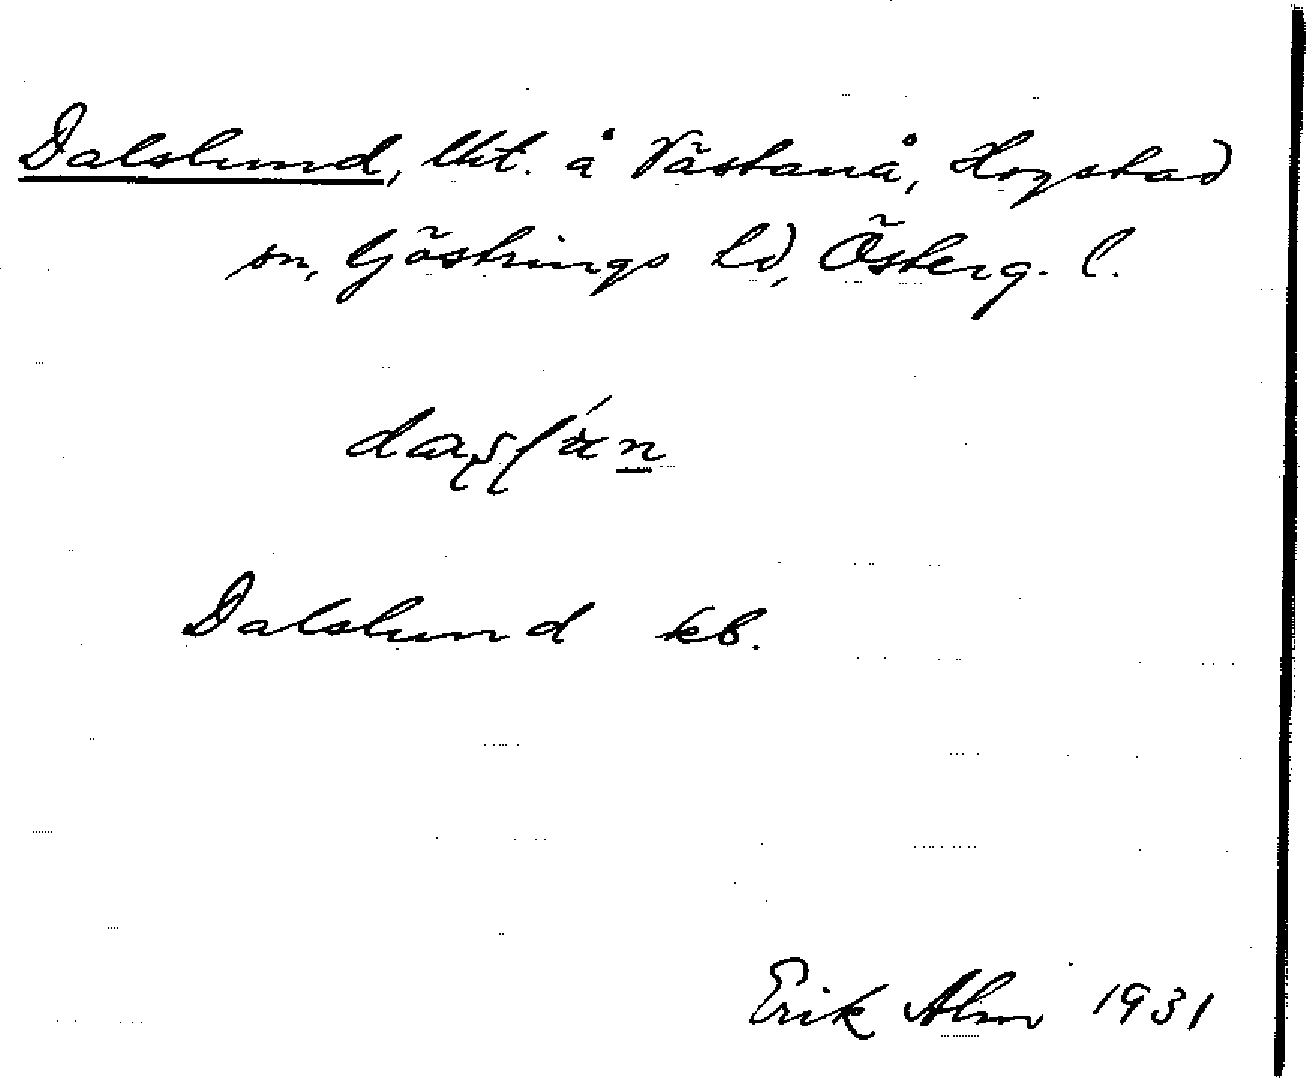 Dalslund, lht. å Västanå, Hogstad
sn, Göstrings hd, Österg. l.
Dalslund kb.
Erik Alm 1931